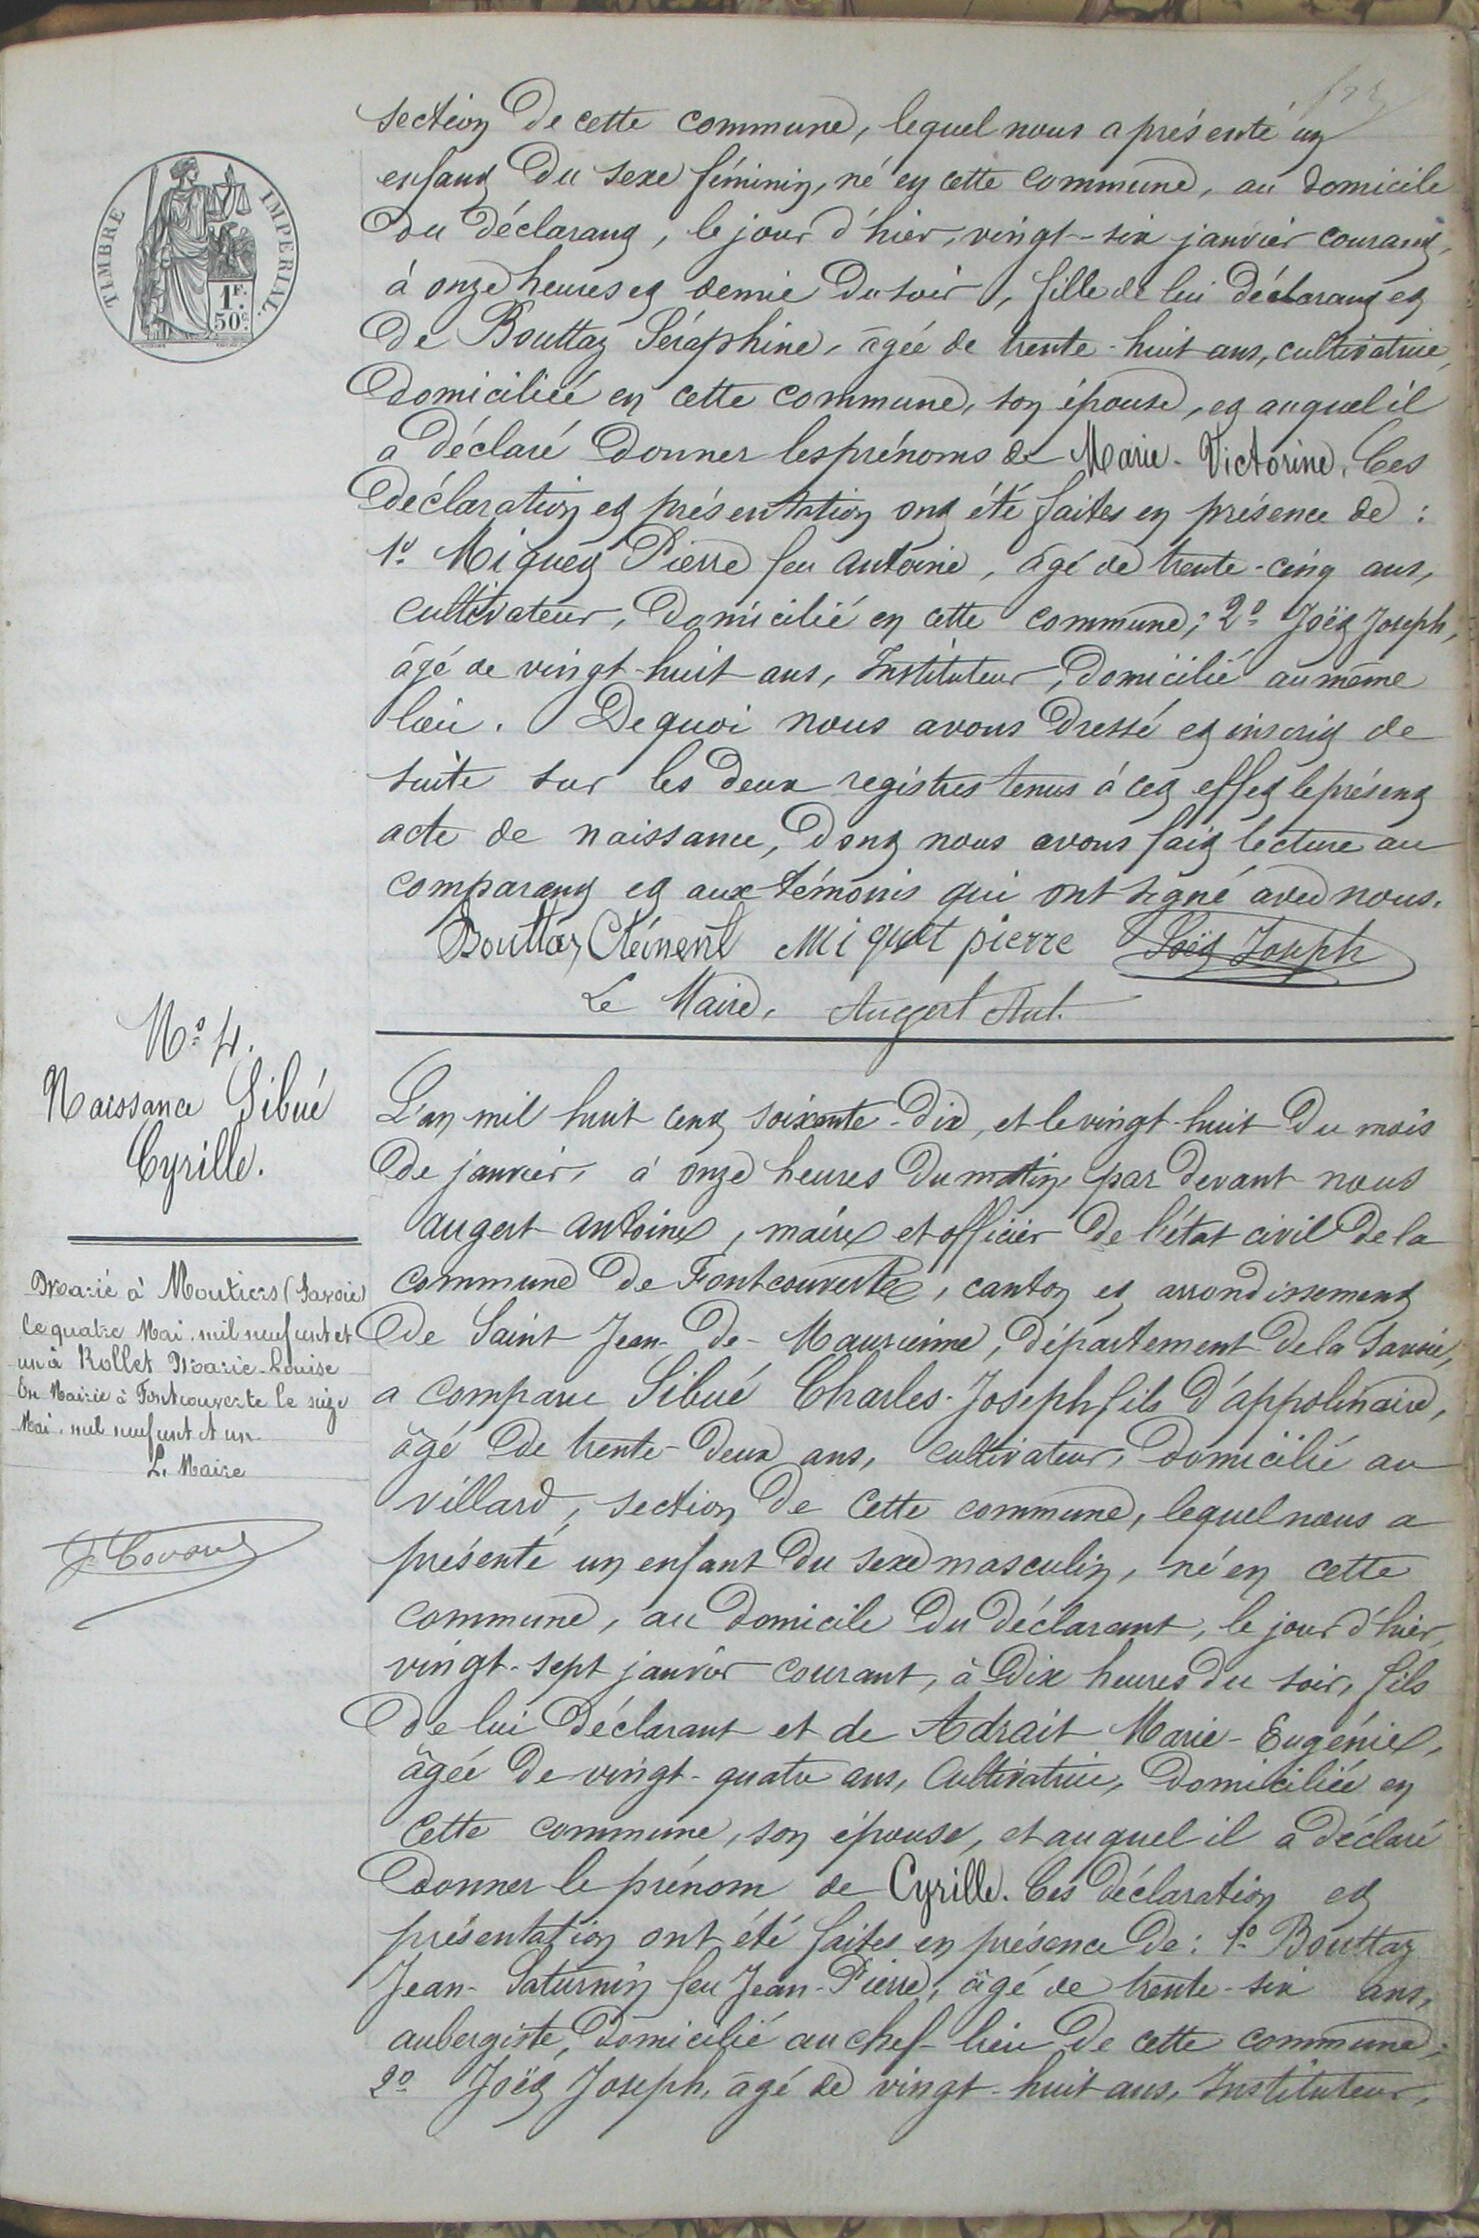 TIMBRE IMPERIAL
1F.
50c.
section de cette commune, lequel nous a présenté un
enfant du sexe féminin, né en cette commune, au domicile
du déclarant, le jour d'hier, vingt-six janvier courant,
à onze heures et demie du soir, fille de lui déclarant et
de Bouttaz Séraphine, âgée de trente-huit ans, cultivatrice,
domiciliée en cette commune, son épouse, et auquel il
a déclaré donner les prénoms de Marie-Victorine. Ces
déclaration et présentation ont été faites en présence de :
1º Miquet Pierre feu antoine, âgé de trente-cinq ans,
cultivateur, domicilié en cette commune; 2º Joët Joseph,
âgé de vingt-huit ans, Instituteur, domicilié au même
lieu. De quoi nous avons dressé et inscrit de
suite sur les deux registres tenus à cet effet le présent
acte de naissance, dont nous avons fait lecture au
comparant et aux témoins qui ont signé avec nous.
Bouttaz Clément Miquet pierre Joët Joseph
Le Maire, Augert Ant.
Nº 4.
Naissance Sibué
Cyrille.
Marié à Moutiers (Savoie)
le quatre Mai mil neuf cent et
un à Rollet Marie-Louise
En Mairie à Fontcouverte le seize
Mai mil neuf cent et un
L. Maire
L'an mil huit cent soixante-dix, et le vingt-huit du mois
de janvier, à onze heures du matin, par devant nous
augert antoine, maire et officier de l'état civil de la
commune de Fontcouverte, canton et arrondissement
de Saint Jean-de-Maurienne, département de la Savoie,
a comparu Sibué Charles-Joseph fils d'appolinaire,
âgé de trente-deux ans, cultivateur, domicilié au
villard, section de cette commune, lequel nous a
présenté un enfant du sexe masculin, né en cette
commune, au domicile du déclarant, le jour d'hier,
vingt-sept janvier courant, à dix heures du soir, fils
de lui déclarant et de Adrait Marie-Eugénie,
âgée de vingt-quatre ans, cultivatrice, domiciliée en
cette commune, son épouse, et auquel il a déclaré
donner le prénom de Cyrille. Ces déclaration et
présentation ont été faites en présence de : 1º Bouttaz
Jean-Saturnin feu Jean-Pierre, âgé de trente-six ans,
aubergiste, domicilié au chef-lieu de cette commune;
2º Joët Joseph, âgé de vingt-huit ans, Instituteur,